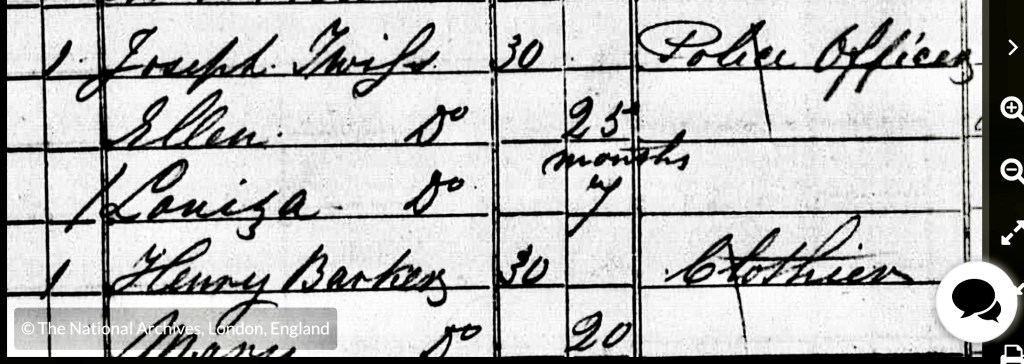 1 Joseph Twiss 30 Police Officer
Ellen Do 25
months
1 Louiza Do 7
1 Henry Barker 30 Clothier
© The National Archives, London, England
Mary Do 20